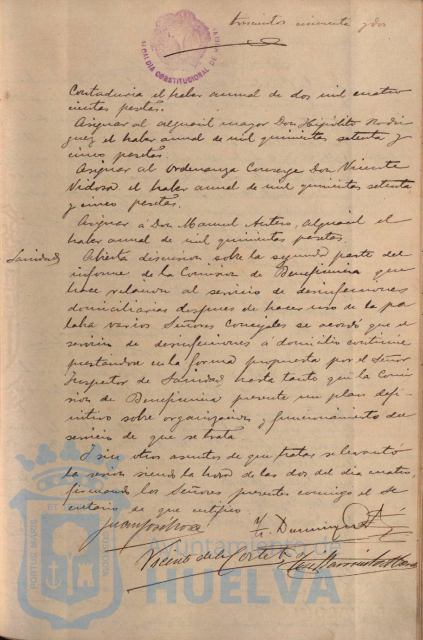 trescientos cincuenta y dos
ALCALDIA CONSTITUCIONAL DE
Contaduria el haber anual de dos mil cuatro
cientas pesetas.
Asignar al alguacil mayor Don Hipolito Rodri
guez el haber anual de mil quinientas setenta y
cinco pesetas.
Asignar al Ordenanza Conserge Don Vicente
Vidosa el haber anual de mil quinientas setenta
y cinco pesetas.
Asignar á Don Manuel alguacil el
haber anual de mil quinientas pesetas.
Sanidad
Abierta discusion sobre la segunda parte del
informe de la Comision de Beneficencia que
hace relacion al servicio de desinfecciones
domiciliarias despues de hacer uso de la pa
labra varios Señores Concejales se acordó que el
servicio de desinfecciones á domicilio continue
prestandose en la forma propuesta por el Señor
Inspector de Sanidad hasta tanto que la Comi
sion de Beneficencia presente un plan defi
nitivo sobre organizacion y funcionamiento del
servicio de que se trata.
Y sin otros asuntos de que tratar se levantó
la sesion siendo la hora de las dos del dia cuatro,
firmando los Señores presentes conmigo el Se
cretario de que certifico.
Juan José
Dominguez
Vicente de la Corte
PORTUS MARIS
ET
Ayuntamiento de
HUELVA